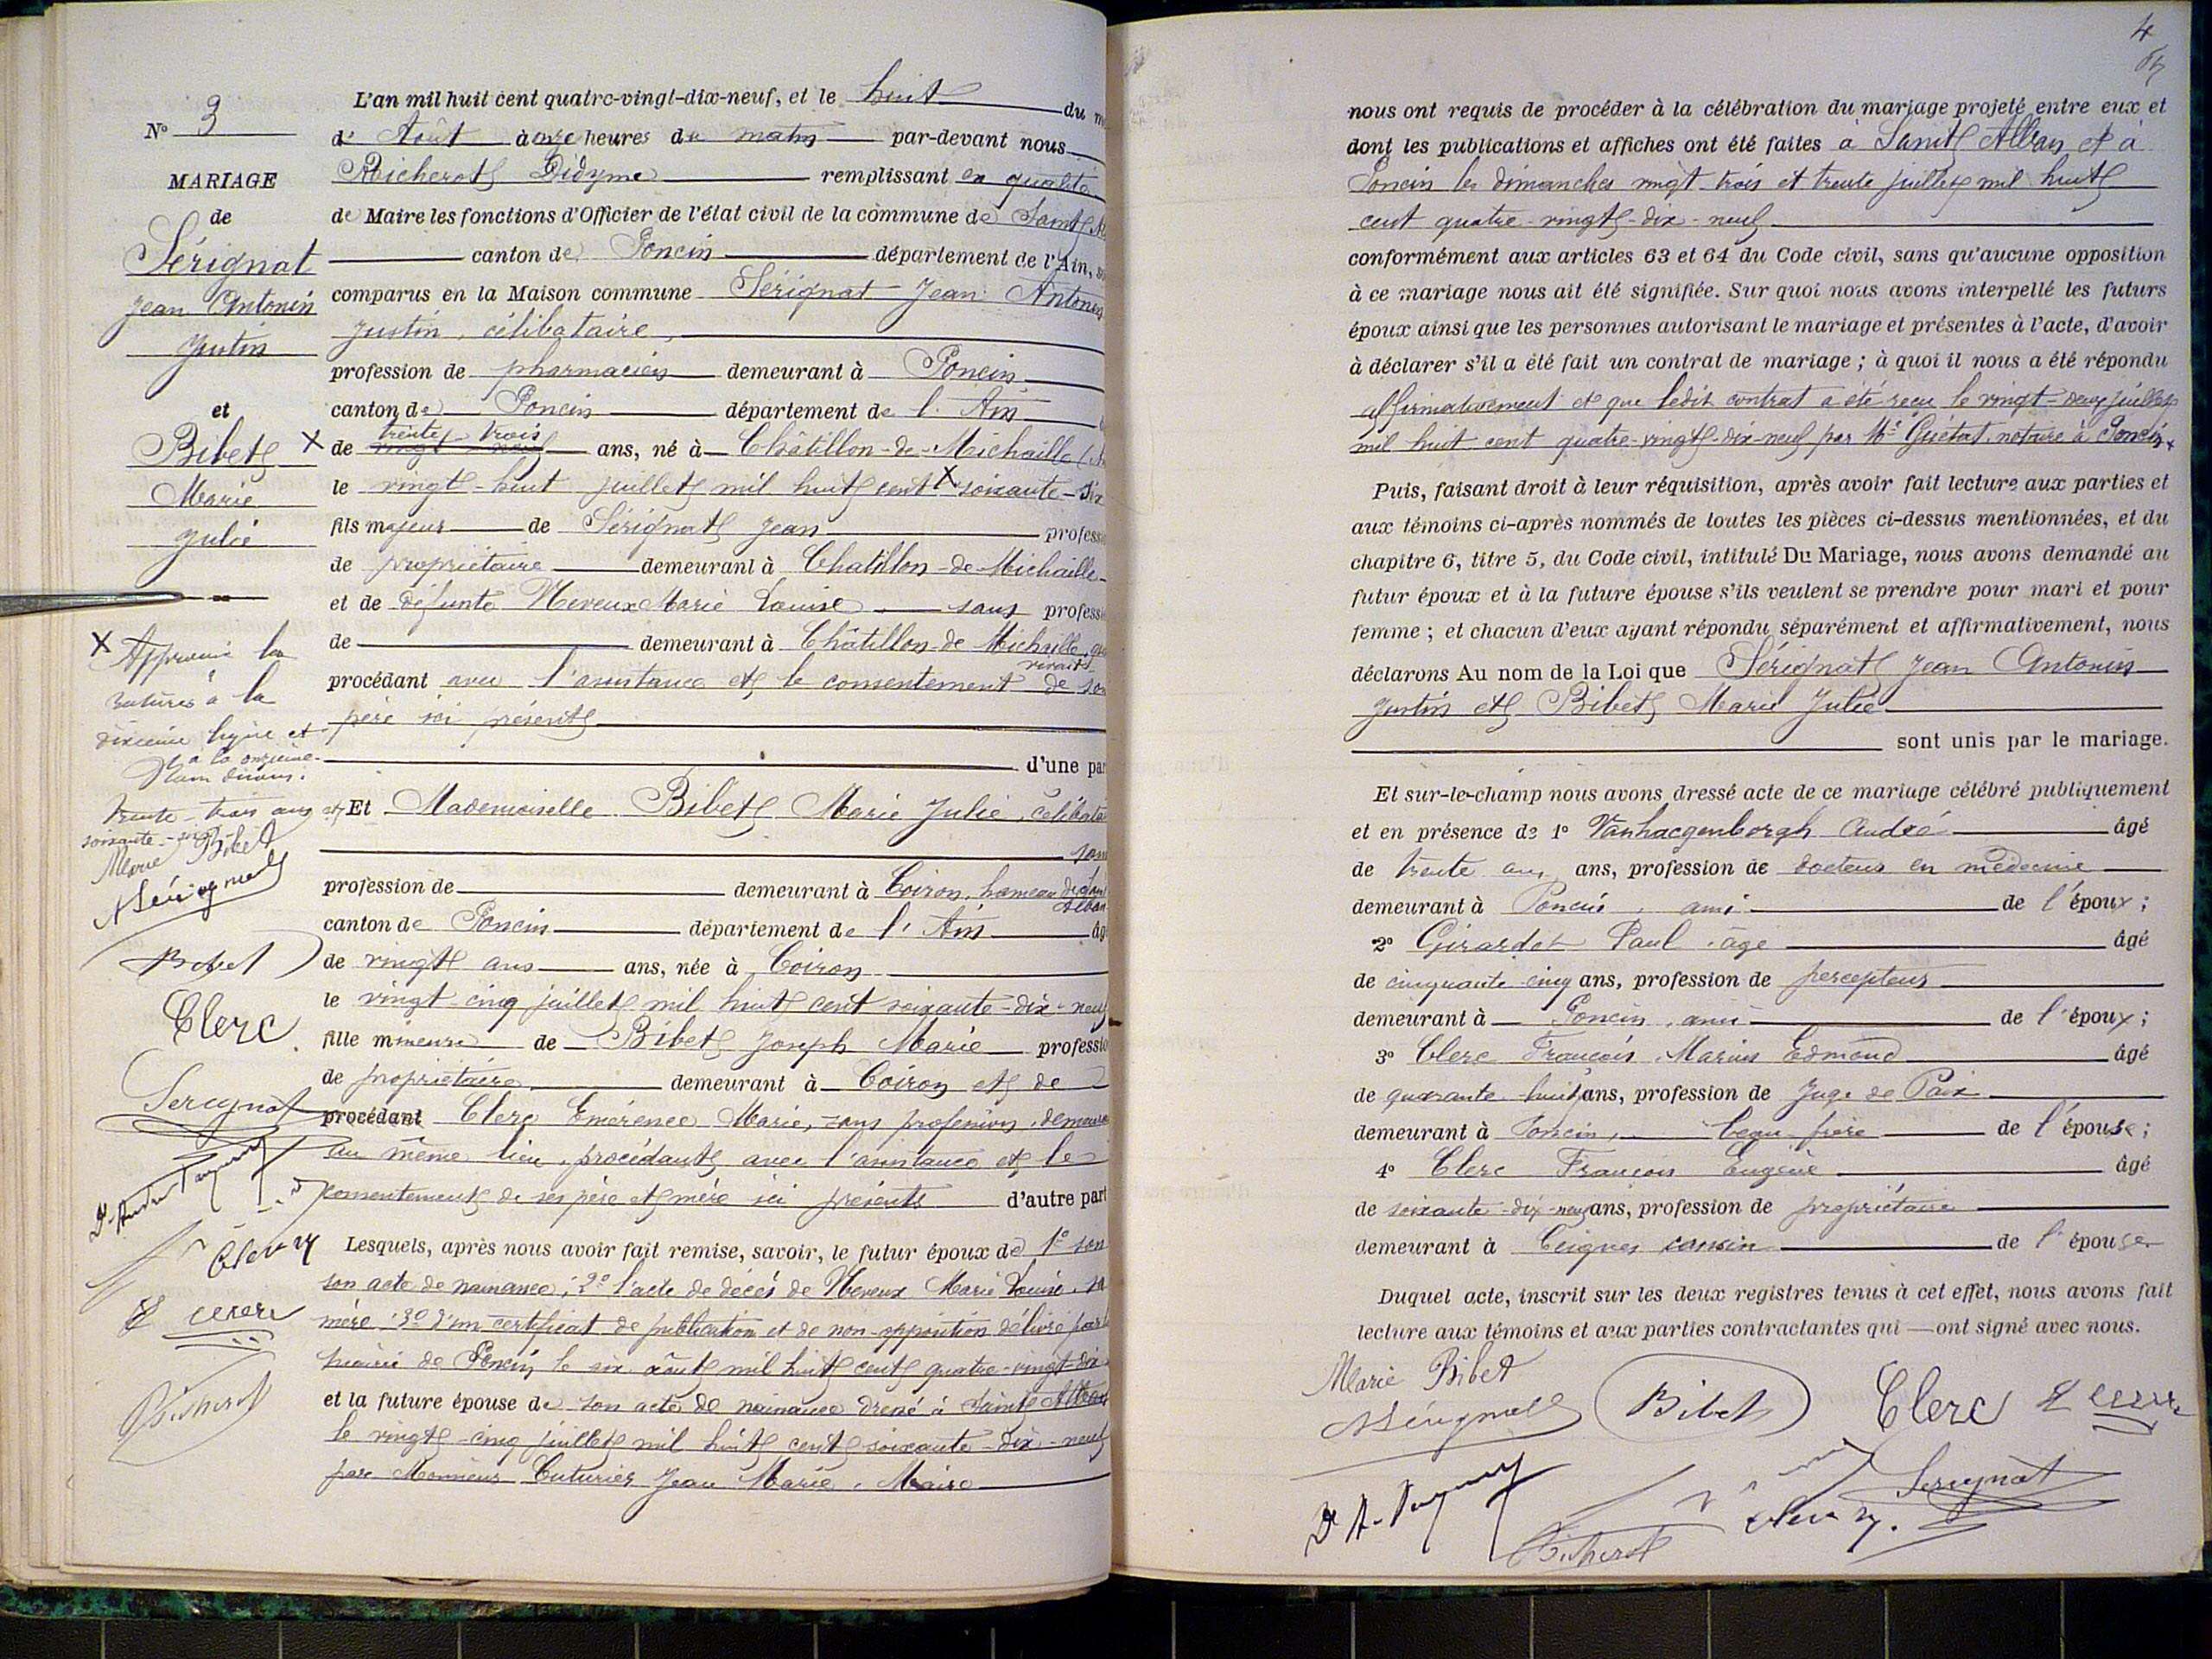 N° 3
MARIAGE
de
Sérignat
Jean Antonin
Justin
et
Bibet
Marie
Julie
X Approuvé la
rature à la
dixième ligne et
à la onzième
trente-trois ans et
soixante-six
Marie Bibet
Bibet
Clerc
Serignat
L'an mil huit cent quatre-vingt-dix-neuf, et le huit du
d' Août à onze heures du matin par-devant nous
Richerot Didyme remplissant en qualité
de Maire les fonctions d'Officier de l'état civil de la commune de Saint
canton de Poncin département de l'Ain,
comparus en la Maison commune Sérignat Jean Antonin
Justin, célibataire,
profession de pharmacien demeurant à Poncin
canton de Poncin département de l'Ain
X de trente-trois ans, né à Châtillon-de-Michaille
le vingt-huit juillet mil huit cent X soixante-six
fils majeur de Sérignat Jean
de propriétaire demeurant à Chatillon-de-Michaille
et de défunte Neveux Marie Louise sans
de demeurant à Châtillon-de-Michaille,
vivait
procédant avec l'assistance et le consentement de son
père ici présent
d'une
Et Mademoiselle Bibet Marie Julie,
profession de demeurant à Coiron, hameau de
Alban
canton de Poncin département de l'Ain
de vingt ans ans, née à Coiron
le vingt-cinq juillet mil huit cent soixante-dix-neuf
fille mineure de Bibet Joseph Marie
de propriétaire demeurant à Coiron et de
procédant Clerc Emérence Marie, sans profession,
au même lieu, procédant avec l'assistance et le
consentement de ses père et mère ici présents d'autre part
Lesquels, après nous avoir fait remise, savoir, le futur époux de 1° son
son acte de naissance; 2° l'acte de décès de Neveux Marie Louise, sa
mère; 3° d'un certificat de publication et de non-opposition délivré par la
mairie de Poncin le six août mil huit cent quatre-vingt-dix
et la future épouse de son acte de naissance dressé à Saint Alban
le vingt-cinq juillet mil huit cent soixante-dix-neuf
par Monsieur Cuturier Jean Marie, Maire
4
nous ont requis de procéder à la célébration du mariage projeté entre eux et
dont les publications et affiches ont été faites à Saint Alban et à
Poncin les dimanches vingt-trois et trente juillet mil huit
cent quatre-vingt-dix-neuf
conformément aux articles 63 et 64 du Code civil, sans qu'aucune opposition
à ce mariage nous ait été signifiée. Sur quoi nous avons interpellé les futurs
époux ainsi que les personnes autorisant le mariage et présentes à l'acte, d'avoir
à déclarer s'il a été fait un contrat de mariage; à quoi il nous a été répondu
affirmativement et que ledit contrat a été reçu le vingt-deux juillet
mil huit cent quatre-vingt-dix-neuf par Me Guétat, notaire à Poncin
Puis, faisant droit à leur réquisition, après avoir fait lecture aux parties et
aux témoins ci-après nommés de toutes les pièces ci-dessus mentionnées, et du
chapitre 6, titre 5, du Code civil, intitulé Du Mariage, nous avons demandé au
futur époux et à la future épouse s'ils veulent se prendre pour mari et pour
femme; et chacun d'eux ayant répondu séparément et affirmativement, nous
déclarons Au nom de la Loi que Sérignat Jean Antonin
Justin et Bibet Marie Julie
sont unis par le mariage.
Et sur-le-champ nous avons dressé acte de ce mariage célébré publiquement
et en présence de 1° Vanhacgenborgh André âgé
de trente ans ans, profession de docteur en médecine
demeurant à Poncin, ami de l'époux;
2° Girardot Paul, âgé âgé
de cinquante-cinq ans, profession de percepteur
demeurant à Poncin, ami de l'époux;
3° Clerc François Marius Edmond âgé
de quarante-huit ans, profession de Juge de Paix
demeurant à Poncin, beau-frère de l'épouse;
4° Clerc François Eugène âgé
de soixante-dix-neuf ans, profession de propriétaire
demeurant à Leignes cousin de l'épouse
Duquel acte, inscrit sur les deux registres tenus à cet effet, nous avons fait
lecture aux témoins et aux parties contractantes qui ont signé avec nous.
Marie Bibet
Bibet Clerc
Serignat
Richerot